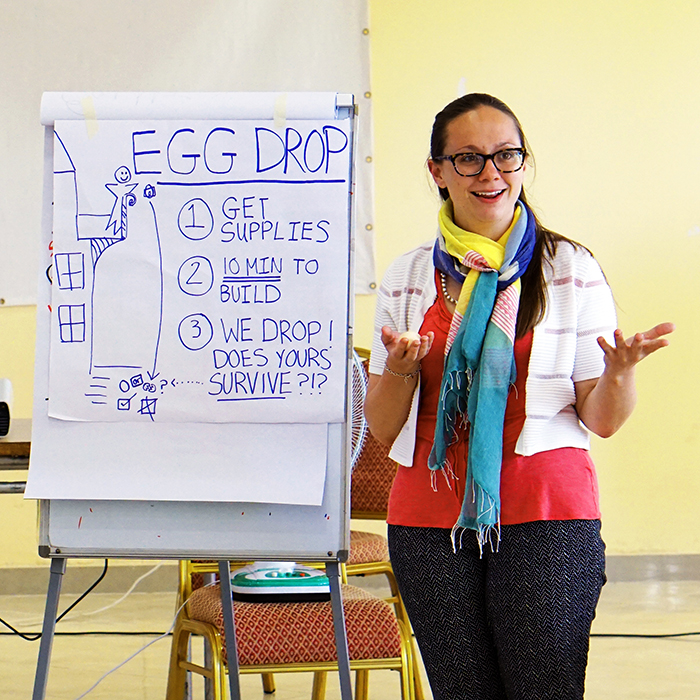 EGG DROP
1 GET
SUPPLIES
2 10 MIN TO
BUILD
3 WE DROP!
DOES YOURS
SURVIVE ?!?
?